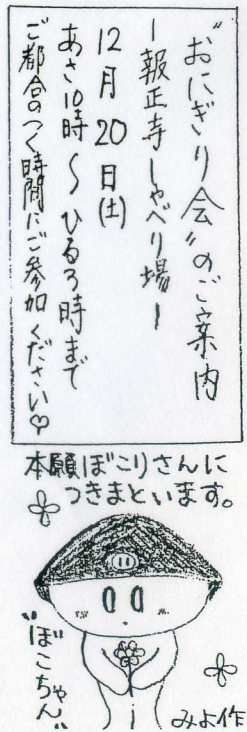 "おにぎり会"のご案内
ー報正寺しゃべり場ー
12月20日(土)
あさ10時〜ひる3時まで
ご都合のつく時間にご参加ください♡
本願ぼこりさんに
つきまといます。
"ぼこちゃん"
みよ作